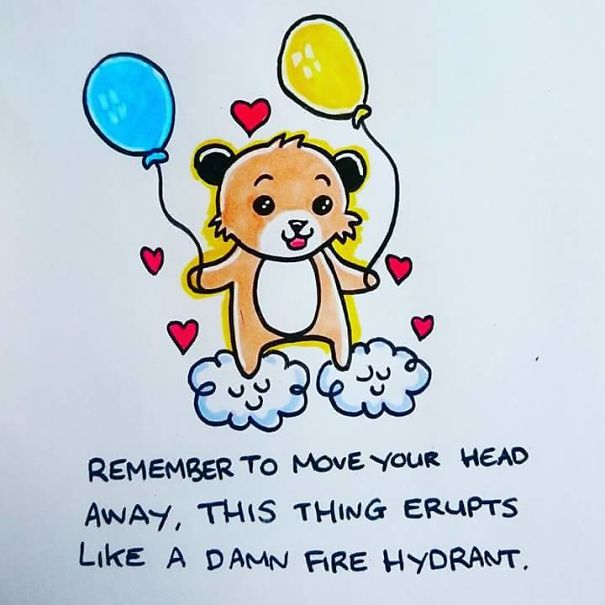 REMEMBER TO MOVE YOUR HEAD
AWAY, THIS THING ERUPTS
LIKE A DAMN FIRE HYDRANT.